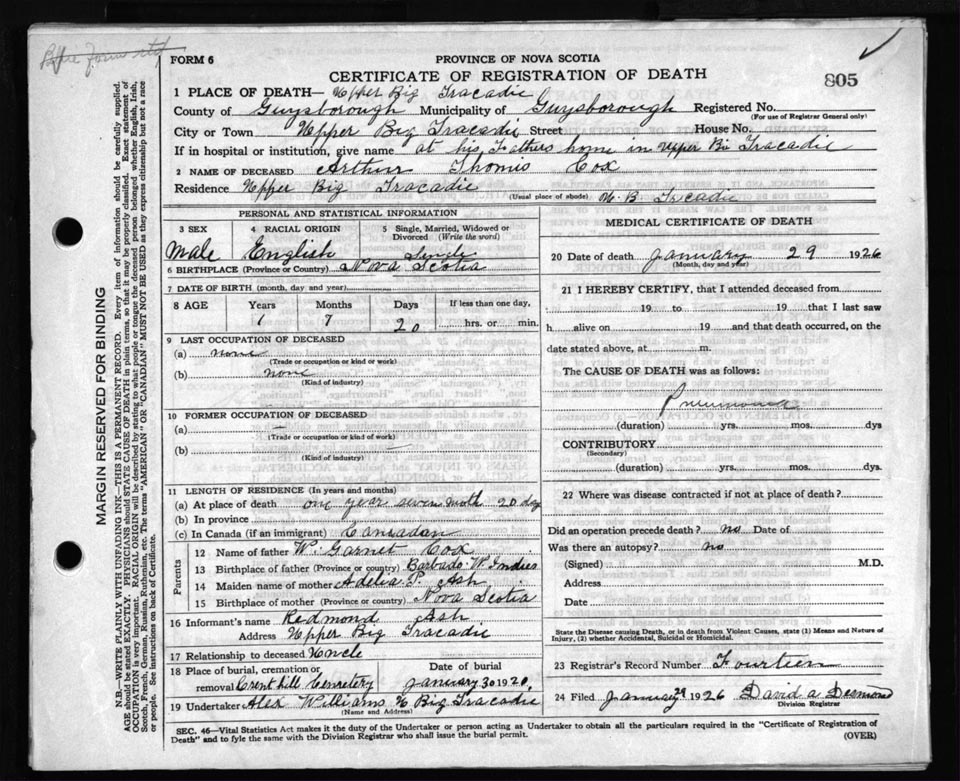 FORM 6
PROVINCE OF NOVA SCOTIA
CERTIFICATE OF REGISTRATION OF DEATH
805
1 PLACE OF DEATH— Upper Big Tracadie
County of Guysborough Municipality of Guysborough Registered No.
(For use of Registrar General only)
City or Town Upper Big Tracadie Street House No.
If in hospital or institution, give name at his Fathers home in Upper Bi Tracadie
2 NAME OF DECEASED Arthur Thomis Cox
Residence Upper Big Tracadie
(Usual place of abode) U. B. Tracadie
PERSONAL AND STATISTICAL INFORMATION
3 SEX 4 RACIAL ORIGIN 5 Single, Married, Widowed or Divorced (Write the word)
Male English Single
6 BIRTHPLACE (Province or Country) Nova Scotia
7 DATE OF BIRTH (month, day and year)
8 AGE Years Months Days If less than one day,
1 7 20 hrs. or min.
9 LAST OCCUPATION OF DECEASED
(a) none
(Trade or occupation or kind or work)
(b) none
(Kind of industry)
10 FORMER OCCUPATION OF DECEASED
(a) —
(Trade or occupation or kind of work)
(b)
(Kind of industry)
11 LENGTH OF RESIDENCE (In years and months)
(a) At place of death one year seven moth 20 day
(b) In province
(c) In Canada (if an immigrant) Canadan
Parents
12 Name of father W. Garnet Cox
13 Birthplace of father (Province or Country) Barbado W. Indies
14 Maiden name of mother Adelia P. Ash
15 Birthplace of mother (Province or country) Nova Scotia
16 Informant's name Redmond Ash
Address Upper Big Tracadie
17 Relationship to deceased Uncle
18 Place of burial, cremation or removal Cemetery
Date of burial January 30 1926
19 Undertaker Alex Williams U Big Tracadie
(Name and Address)
MEDICAL CERTIFICATE OF DEATH
20 Date of death January 29 1926
(Month, day and year)
21 I HEREBY CERTIFY, that I attended deceased from
19 to 19 that I last saw
h alive on 19 and that death occurred, on the
date stated above, at m.
The CAUSE OF DEATH was as follows:
Pneumonia
(duration) yrs. mos. dys
CONTRIBUTORY
(Secondary)
(duration) yrs. mos. dys.
22 Where was disease contracted if not at place of death?
Did an operation precede death? no Date of
Was there an autopsy? no
(Signed) M.D.
Address
Date
State the Disease causing Death, or in death from Violent Causes, state (1) Means and Nature of
Injury, (2) whether Accidental, Suicidal or Homicidal.
23 Registrar's Record Number Fourteen
24 Filed January 29 1926 David a
Division Registrar
SEC. 46—Vital Statistics Act makes it the duty of the Undertaker or person acting as Undertaker to obtain all the particulars required in the "Certificate of Registration of
Death" and to fyle the same with the Division Registrar who shall issue the burial permit.
(OVER)
MARGIN RESERVED FOR BINDING
N.B.—WRITE PLAINLY WITH UNFADING INK—THIS IS A PERMANENT RECORD. Every item of information should be carefully supplied.
AGE should be stated EXACTLY. PHYSICIANS should STATE CAUSE OF DEATH in plain terms, so that it may be properly classified. Exact statement of
OCCUPATION is very important. RACIAL ORIGIN will be described by stating to what people or tongue the deceased person belonged whether English, Irish,
Scotch, French, German, Russian, Ruthenian, etc. The terms "AMERICAN" OR "CANADIAN" MUST NOT BE USED as they express citizenship but not a race
or people. See instructions on back of Certificate.